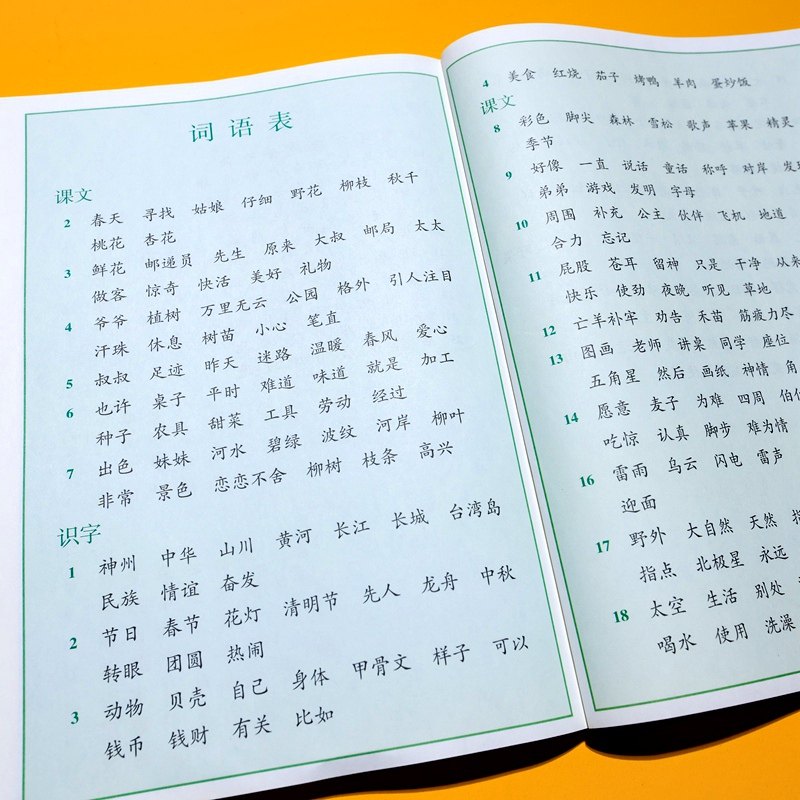 词语表
课文
2 春天 寻找 姑娘 仔细 野花 柳枝 秋千
桃花 杏花
3 鲜花 邮递员 先生 原来 大叔 邮局 太太
做客 惊奇 快活 美好 礼物
4 爷爷 植树 万里无云 公园 格外 引人注目
汗珠 休息 树苗 小心 笔直
5 叔叔 足迹 昨天 迷路 温暖 春风 爱心
6 也许 桌子 平时 难道 味道 就是 加工
种子 农具 甜菜 工具 劳动 经过
7 出色 妹妹 河水 碧绿 波纹 河岸 柳叶
非常 景色 恋恋不舍 柳树 枝条 高兴
识字
1 神州 中华 山川 黄河 长江 长城 台湾岛
民族 情谊 奋发
2 节日 春节 花灯 清明节 先人 龙舟 中秋
转眼 团圆 热闹
3 动物 贝壳 自己 身体 甲骨文 样子 可以
钱币 钱财 有关 比如
4 美食 红烧 茄子 烤鸭 羊肉 蛋炒饭
课文
8 彩色 脚尖 森林 雪松 歌声 苹果 精灵
季节
9 好像 一直 说话 童话 称呼 对岸
弟弟 游戏 发明 字母
10 周围 补充 公主 伙伴 飞机 地道
合力 忘记
11 屁股 苍耳 留神 只是 干净 从来
快乐 使劲 夜晚 听见 草地
12 亡羊补牢 劝告 禾苗 筋疲力尽
13 图画 老师 讲桌 同学 座位
五角星 然后 画纸 神情
14 愿意 麦子 为难 四周
吃惊 认真 脚步 难为情
16 雷雨 乌云 闪电 雷声
迎面
17 野外 大自然 天然
指点 北极星 永远
18 太空 生活 别处
喝水 使用 洗澡